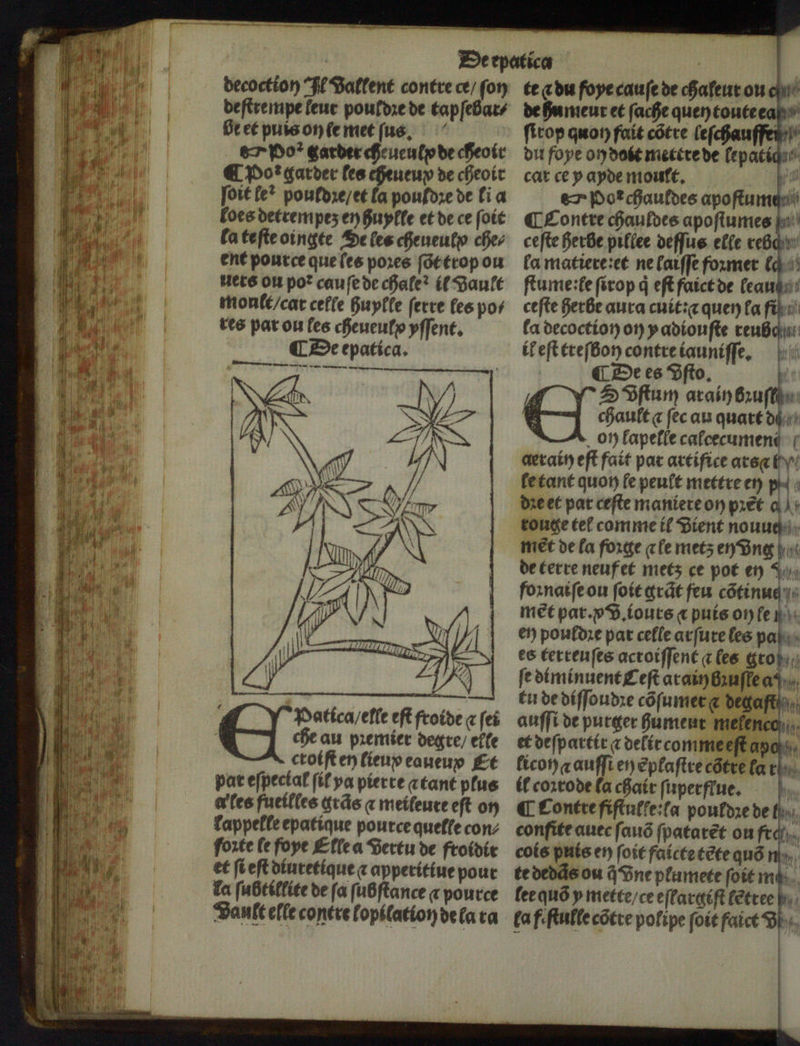 De epatica
decoction Il vallent contre ce/ son
destrempe leur pouldre de tapsebar⸗
be et puis on le met sus.
☞ Po² garder cheueulx de cheoir
¶ Po² garder les cheueux de cheoir
soit le² pouldre/et la pouldre de li a
loes detrempez en huylle et de ce soit
la teste oingte De les cheueulx che⸗
ent pource que les pores sõt trop ou
uers ou po² cause de chale² il vault
moult/car celle huylle serre les po⸗
res par ou les cheueulx yssent.
¶ De epatica.
EPatica/elle est froide ⁊ sei
che au premier degre/ elle
croist en lieux eaueux Et
par especial sil ya pierre ⁊ tant plus
a les fueilles grãs ⁊ meileure est on
lappelle epatique pource quelle con⸗
forte le foye Elle a vertu de froidir
et si est diuretique ⁊ apperitiue pour
la subtillite de sa substance ⁊ pource
vault elle contre lopilation de la ra
te ⁊ du foye cause de chaleur ou
de humeur et sache quen toute
sirop quon fait cõtre leschauffe
du foye on doit mettre de lepatiq
car ce y ayde moult.
☞ Po² chauldes apostum
¶ Contre chauldes apostumes
ceste herbe pillee dessus elle reb
la matiere:et ne laisse former
stume:le sirop q̃ est faict de leau
ceste herbe aura cuit:⁊ quen la fi
la decoction on y adiouste reub
il est tresbon contre iaunisse.
¶ De es vsto.
ES vstum arain brusl
chault ⁊ sec au quart
on lapelle calcecumen
aerain est fait par artifice ars⁊
le tant quon le peult mettre en
dre et par ceste maniere on prẽt
rouge tel comme il vient nouue
mẽt de la forge ⁊ le metz en vng
de terre neuf et metz ce pot en
fornaise ou soit grãt feu cõtinue
mẽt par.xv.iours ⁊ puis on le
en pouldre par celle arsure les pa
es terreuses acroissent ⁊ les gro
se diminuent Cest arain brusle a
tu de dissoudre cõsumer ⁊ degast
aussi de purger humeur melenco
et despartir ⁊ delir comme est apo
licon ⁊ aussi en ẽplastre cõtre la
il corrode la chair superflue.
¶ Contre fistulle:la pouldre de
confite auec sauõ spatarẽt ou
cois puis en soit faicte tẽte quõ
te dedãs ou q̃ vne plumete soit
lee quõ y mette/ce eslargist lẽtree
la fistulle cõtre polipe soit faict